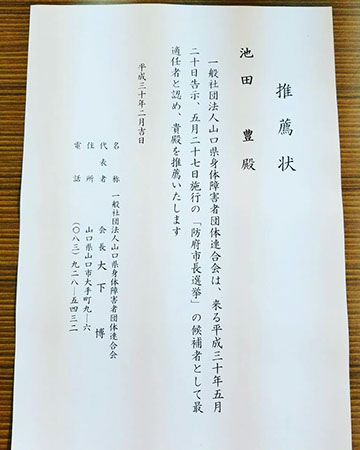 推薦状
池田 豊 殿
一般社団法人山口県身体障害者団体連合会は、来る平成三十年五月
二十日告示、五月二十七日施行の「防府市長選挙」の候補者として最
適任者と認め、貴殿を推薦いたします
平成三十年二月吉日
名称 一般社団法人山口県身体障害者団体連合会
代表者 会長 大下 博
住所 山口県山口市大手町九―六
電話 (〇八三)九二八―五四三二